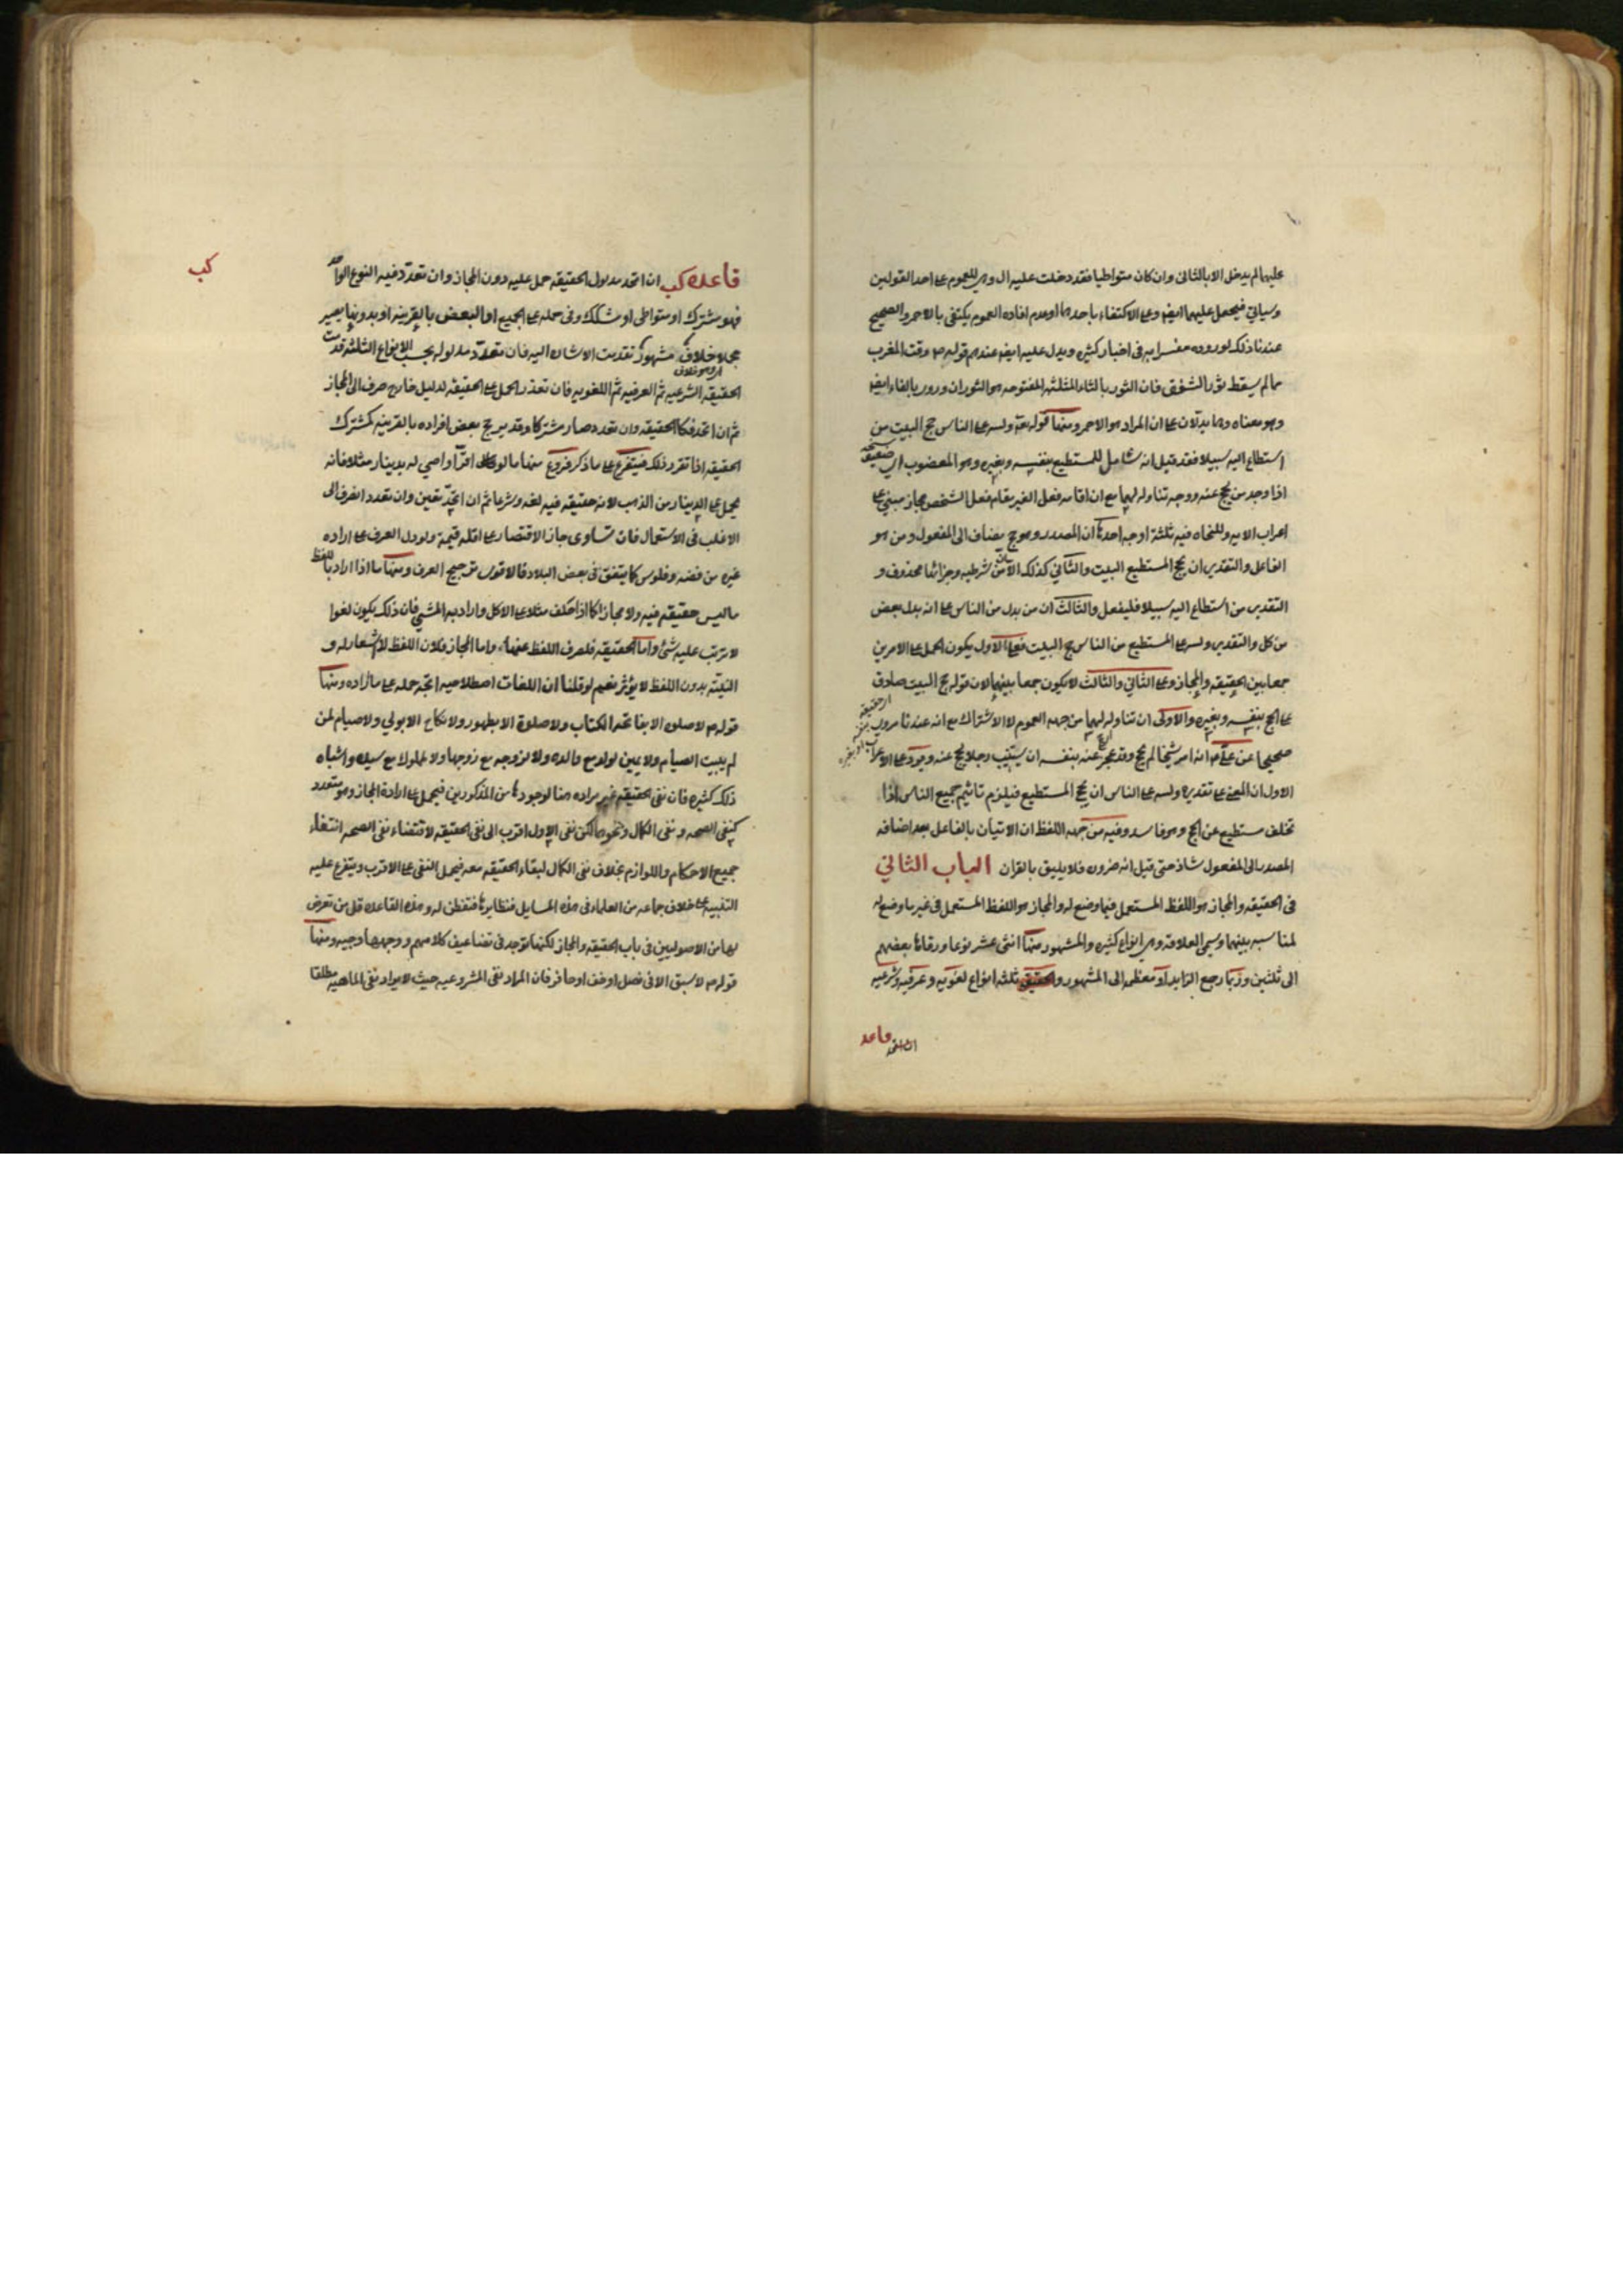 عليهما لم يدخل الا بالثاني وان كان متواطيا فقد دخلت عليه ال وهي للعموم على احد القولين
وسياتي فيحمل عليهما ايضا وعلى الاكتفاء باحدهما او عدم افاده العموم يكتفى بالاحمر والصحيح
عندنا ذلك لوروده مفسرا به في اخبار كثيره ويدل عليه ايضا عندهم قوله ص وقت المغرب
ما لم يسقط ثور الشفق فان الثور بالثاء المثلثه المفتوحه هو الثوران وروي بالفاء ايضا
وهو معناه وهما يدلان على ان المراد هو الاحمر ومنها قوله تعه ولله على الناس حج البيت من
استطاع اليه سبيلا فقد قيل انه شامل للمستطيع بنفسه وبغيره وهو المعضوب اي
اذا وجد من يحج عنه ووجه تناوله لهما مع ان اقامه فعل الغير مقام فعل الشخص مجاز مبني على
اعراب الايه وللنحاه فيه ثلثة اوجه احدها ان المصدر وهو حج مضاف الى المفعول ومن هو
الفاعل والتقدير ان يحج المستطيع البيت والثاني كذلك الا ان من شرطيه وجزائها محذوف و
التقدير من استطاع اليه سبيلا فليفعل والثالث ان من بدل من الناس على انه بدل بعض
من كل والتقدير ولله على المستطيع من الناس حج البيت فعلى الاول يكون الحمل على الامرين
جمعا بين الحقيقه والمجاز وعلى الثاني والثالث لا يكون جمعا بينهما لان قوله حج البيت صادق
على الحج بنفسه وبغيره والاولى ان تناوله لهما من جهه العموم لا الاشتراك مع انه عندنا مروي
صحيحا عن علي ع انه امر شيخا لم يحج وقد عجز عنه بنفسه ان يستنيب رجلا يحج عنه ويرد على الاعراب
الاول ان المعنى على تقديره ولله على الناس ان يحج المستطيع فيلزم تاثيم جميع الناس اذا
تخلف مستطيع عن الحج وهو فاسد وفيه من جهه اللفظ ان الاتيان بالفاعل بعد اضافه
المصدر الى المفعول شاذ حتى قيل انه ضروره فلا يليق بالقران الباب الثاني
في الحقيقه والمجاز هو اللفظ المستعمل فيما وضع له والمجاز هو اللفظ المستعمل في غير ما وضع له
لمناسبه بينهما وسمي العلاقة وهي انواع كثيره والمشهور منها اثنى عشر نوعا ورقاها بعضهم
الى ثلثين وربما رجع الزايد او معظمه الى المشهور والحقيقه ثلثه انواع لغويه وعرفيه وشرعيه
قاعد
كب
قاعده كب ان اتحد مدلول الحقيقه حمل عليه دون المجاز وان تعدد فيه النوع الواحد
فهو مشترك او متواطي او مشكك وفي حمله على الجميع او البعض بالقرينه او بدونها يصير
مجملا خلاف مشهور تقدمت الاشاره اليه فان تعدد مدلوله بحسب الانواع الثلثه قدمت
الحقيقه الشرعيه ثم العرفيه ثم اللغويه فان تعذر الحمل على الحقيقه لدليل خارج صرف الى المجاز
ثم ان اتحد فكالحقيقه وان تعدد صار مشتركا وقد يرجح بعض افراده بالقرينه كمشترك
الحقيقه اذا تقرر ذلك فيتفرع على ما ذكر فروع منها ما لو قال اقر او اوصي له بدينار مثلا فانه
يحمل على الدينار من الذهب لانه حقيقه فيه لغه وشرعا ثم ان اتحد تعين وان تعدد انصرف الى
الاغلب في الاستعمال فان تساوى جاز الاقتصار على اقله قيمة ولو دل العرف على اراده
غيره من فضه وفلوس كما يتفق في بعض البلاد فالاقوى ترجيح العرف ومنها ما اذا اراد باللفظ
ما ليس حقيقه فيه ولا مجازا كما اذا حلف مثلا على الاكل واراد به المشي فان ذلك يكون لغوا
لا يترتب عليه شئ اما الحقيقه فلصرف اللفظ عنها واما المجاز فلان اللفظ لا اشعار له و
النية بدون اللفظ لا يؤثر نعم لو قلنا ان اللغات اصطلاحيه اتجه حمله على ما اراده ومنها
قوله ص لا صلوه الا بفاتحه الكتاب ولا صلوة الا بطهور ولا نكاح الا بولي ولا صيام لمن
لم يبيت الصيام ولا يمين لولد مع والده ولا لزوجه مع زوجها ولا لمملوك مع سيده واشباه
ذلك كثيره فان نفي الحقيقه غير مراده هنا لوجودها من المذكورين فيحمل على ارادة المجاز وهو متعدد
كنفي الصحه ونفي الكمال ونحوهما لكن نفي الاول اقرب الى نفي الحقيقه لاقتضاء نفي الصحه انتفاء
جميع الاحكام واللوازم بخلاف نفي الكمال لبقاء الحقيقه معه فيحمل النفي على الاقرب ويتفرع عليه
التنبيه على خلاف جماعه من العلماء في هذه المسايل ونظايرها فتفطن له وهذه القاعده قل من تعرض
لها من الاصوليين في باب الحقيقه والمجاز لكنها توجد في تضاعيف كلامهم ووجهها وجيه ومنها
قوله ص لا سبق الا في نصل او خف او حافر فان المراد نفي المشروعيه حيث لا يراد نفي الماهيه مطلقا